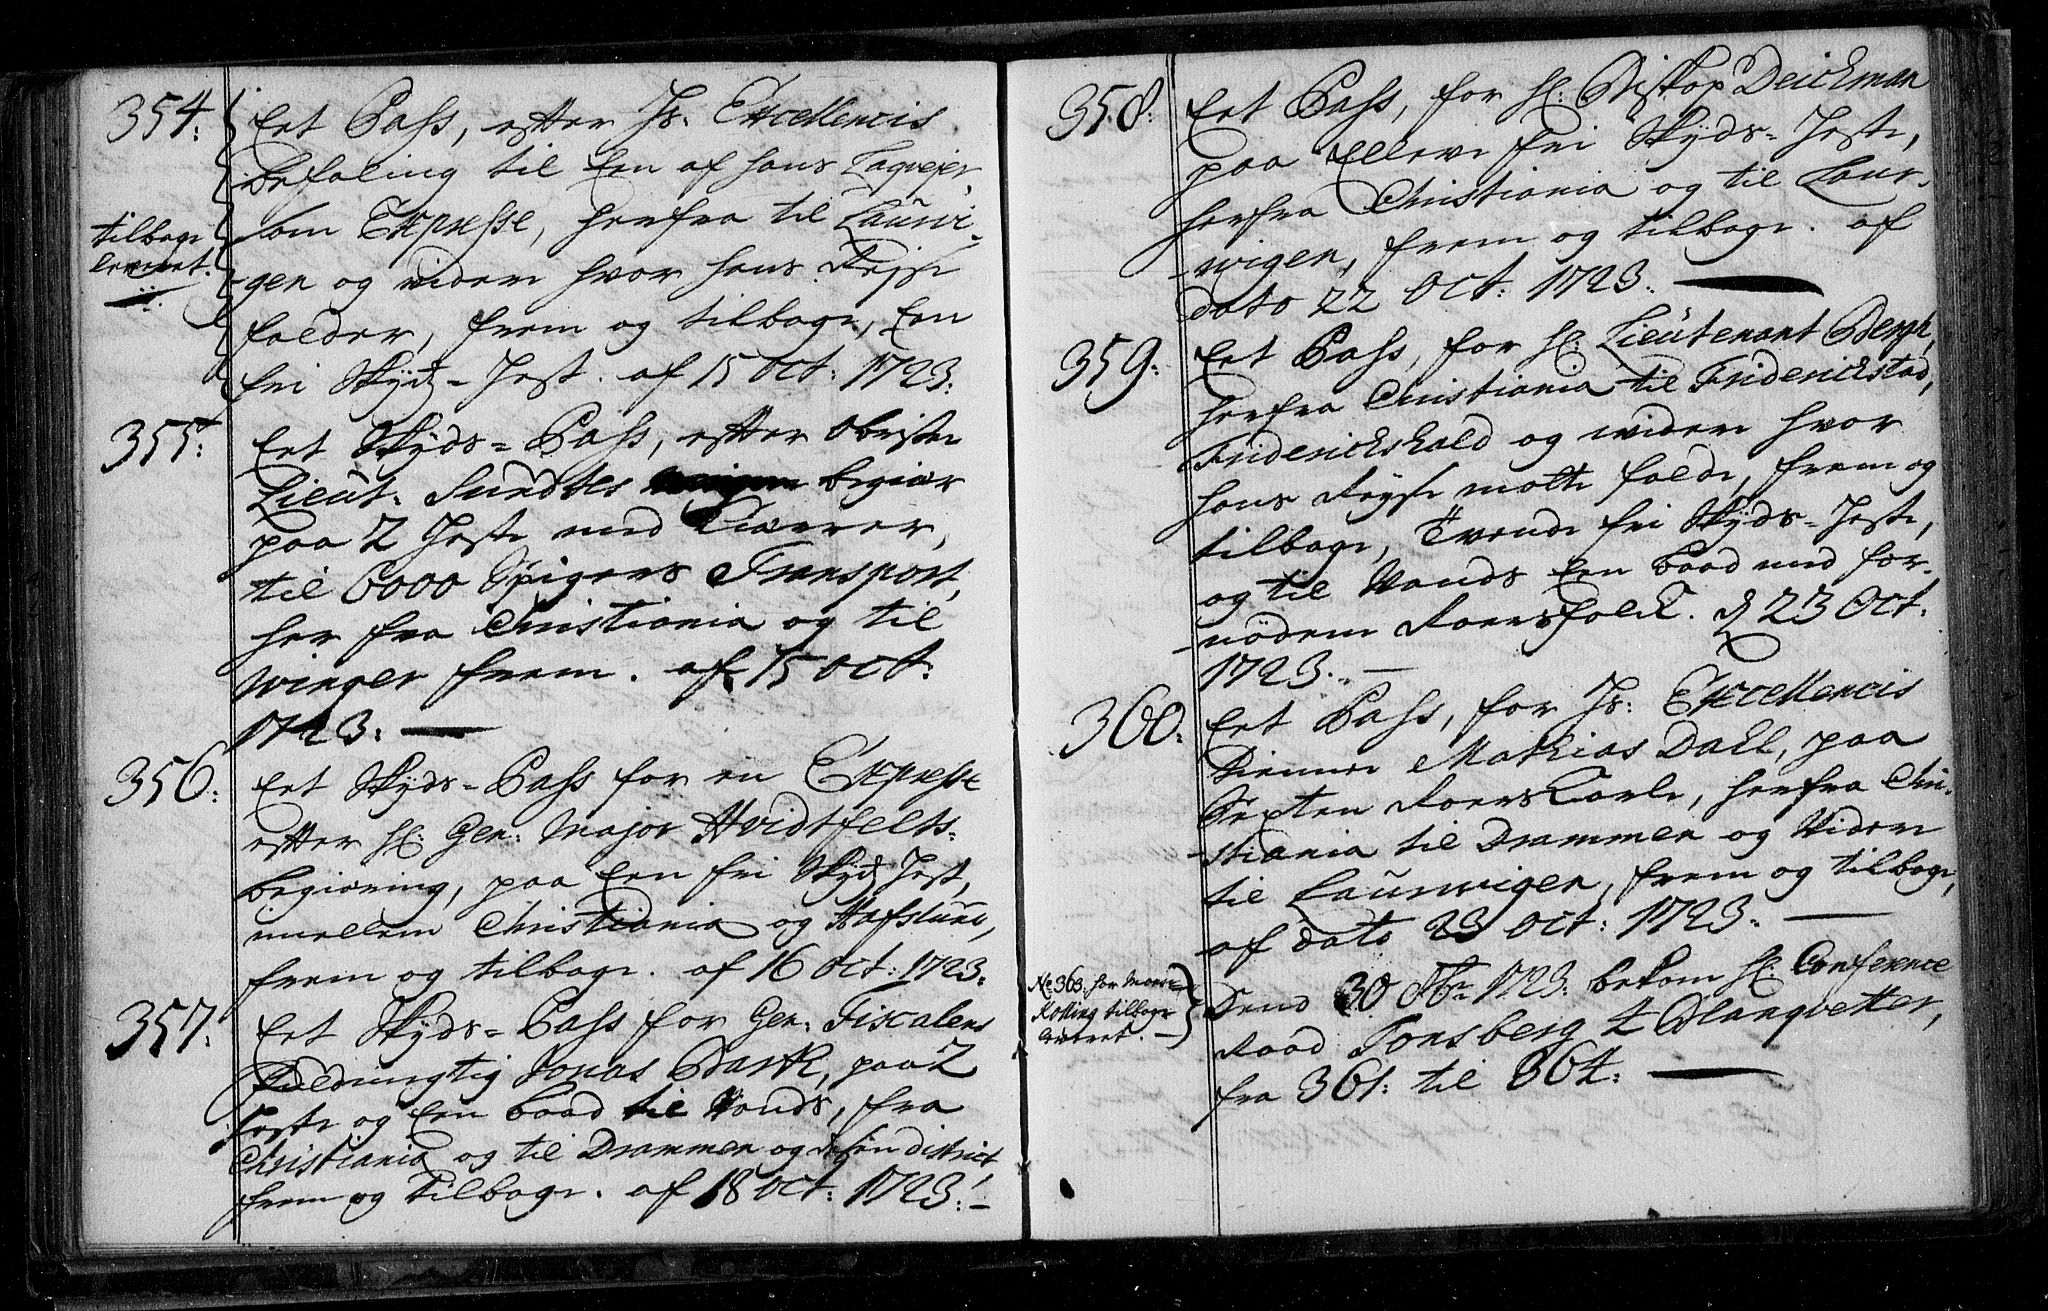 354:
Eet Pass, efter Hs. Excellencis
befaling til Een af hans Laqvejer,
som Expresse, herfra til Laurvi-
-gen og videre hvor hans Rejse
falder, frem og tilbage, Een
fri Skydtz-Hest. af 15 Oct: 1723:
tilbage
leveret.
355:
Eet Skyds-Pass, efter Obriste
Lieut: Sundtes begiær
paa 2 Heste med Kiærrer,
til 6000 Spigers Transport,
her fra Christiania og til
Winger frem. af 15 Oct:
1723:
356:
Eet Skyds-Pass for en Expresse
efter Hr: Gen: Major Hvidtfelts
begiæring, paa Een fri Skyds Hest,
imellem Christiania og Hafslund,
frem og tilbage. af 16 Oct: 1723.
357:
Eet Skyds-Pass for Gen: Fiscalens
Fuldmægtig Jonas Bark, paa 2
Heste og Een baad til Vands, fra
Christiania og til Drammen og dessen district,
frem og tilbage. af 18 Oct: 1723:
358:
Eet Pass, for Hr: Biskop Deichman
paa Elleve fri Skyds-Heste,
herfra Christiania og til Laur-
-wigen, frem og tilbage. af
dato 22 Oct: 1723.
359:
Eet Pass, for Hr: Lieutenant Bergh,
herfra Christiania til Friderichstad,
Friderichshald og widere hvor
hans Reyse motte falde, frem og
tilbage, Tvende fri Skyds-Heste,
og til Vands Een baad med for-
-nødem Roersfolck. d 23 Oct:
1723.
360:
Eet Pass, for Hs: Excellencis
Tienner Mathias Dall, paa
Sexten Roerskarle, herfra Chri-
-stiania til Drammen og Videre
til Laurwigen, frem og tilbage,
af dato 23 Oct: 1723.
No 363. har Mons:
Kolling tilbage
leveret.
Dend 30 8br 1723: bekom Hr: Conference
Raad Tonsberg 4 Blanqvetter,
fra 361: til 364: